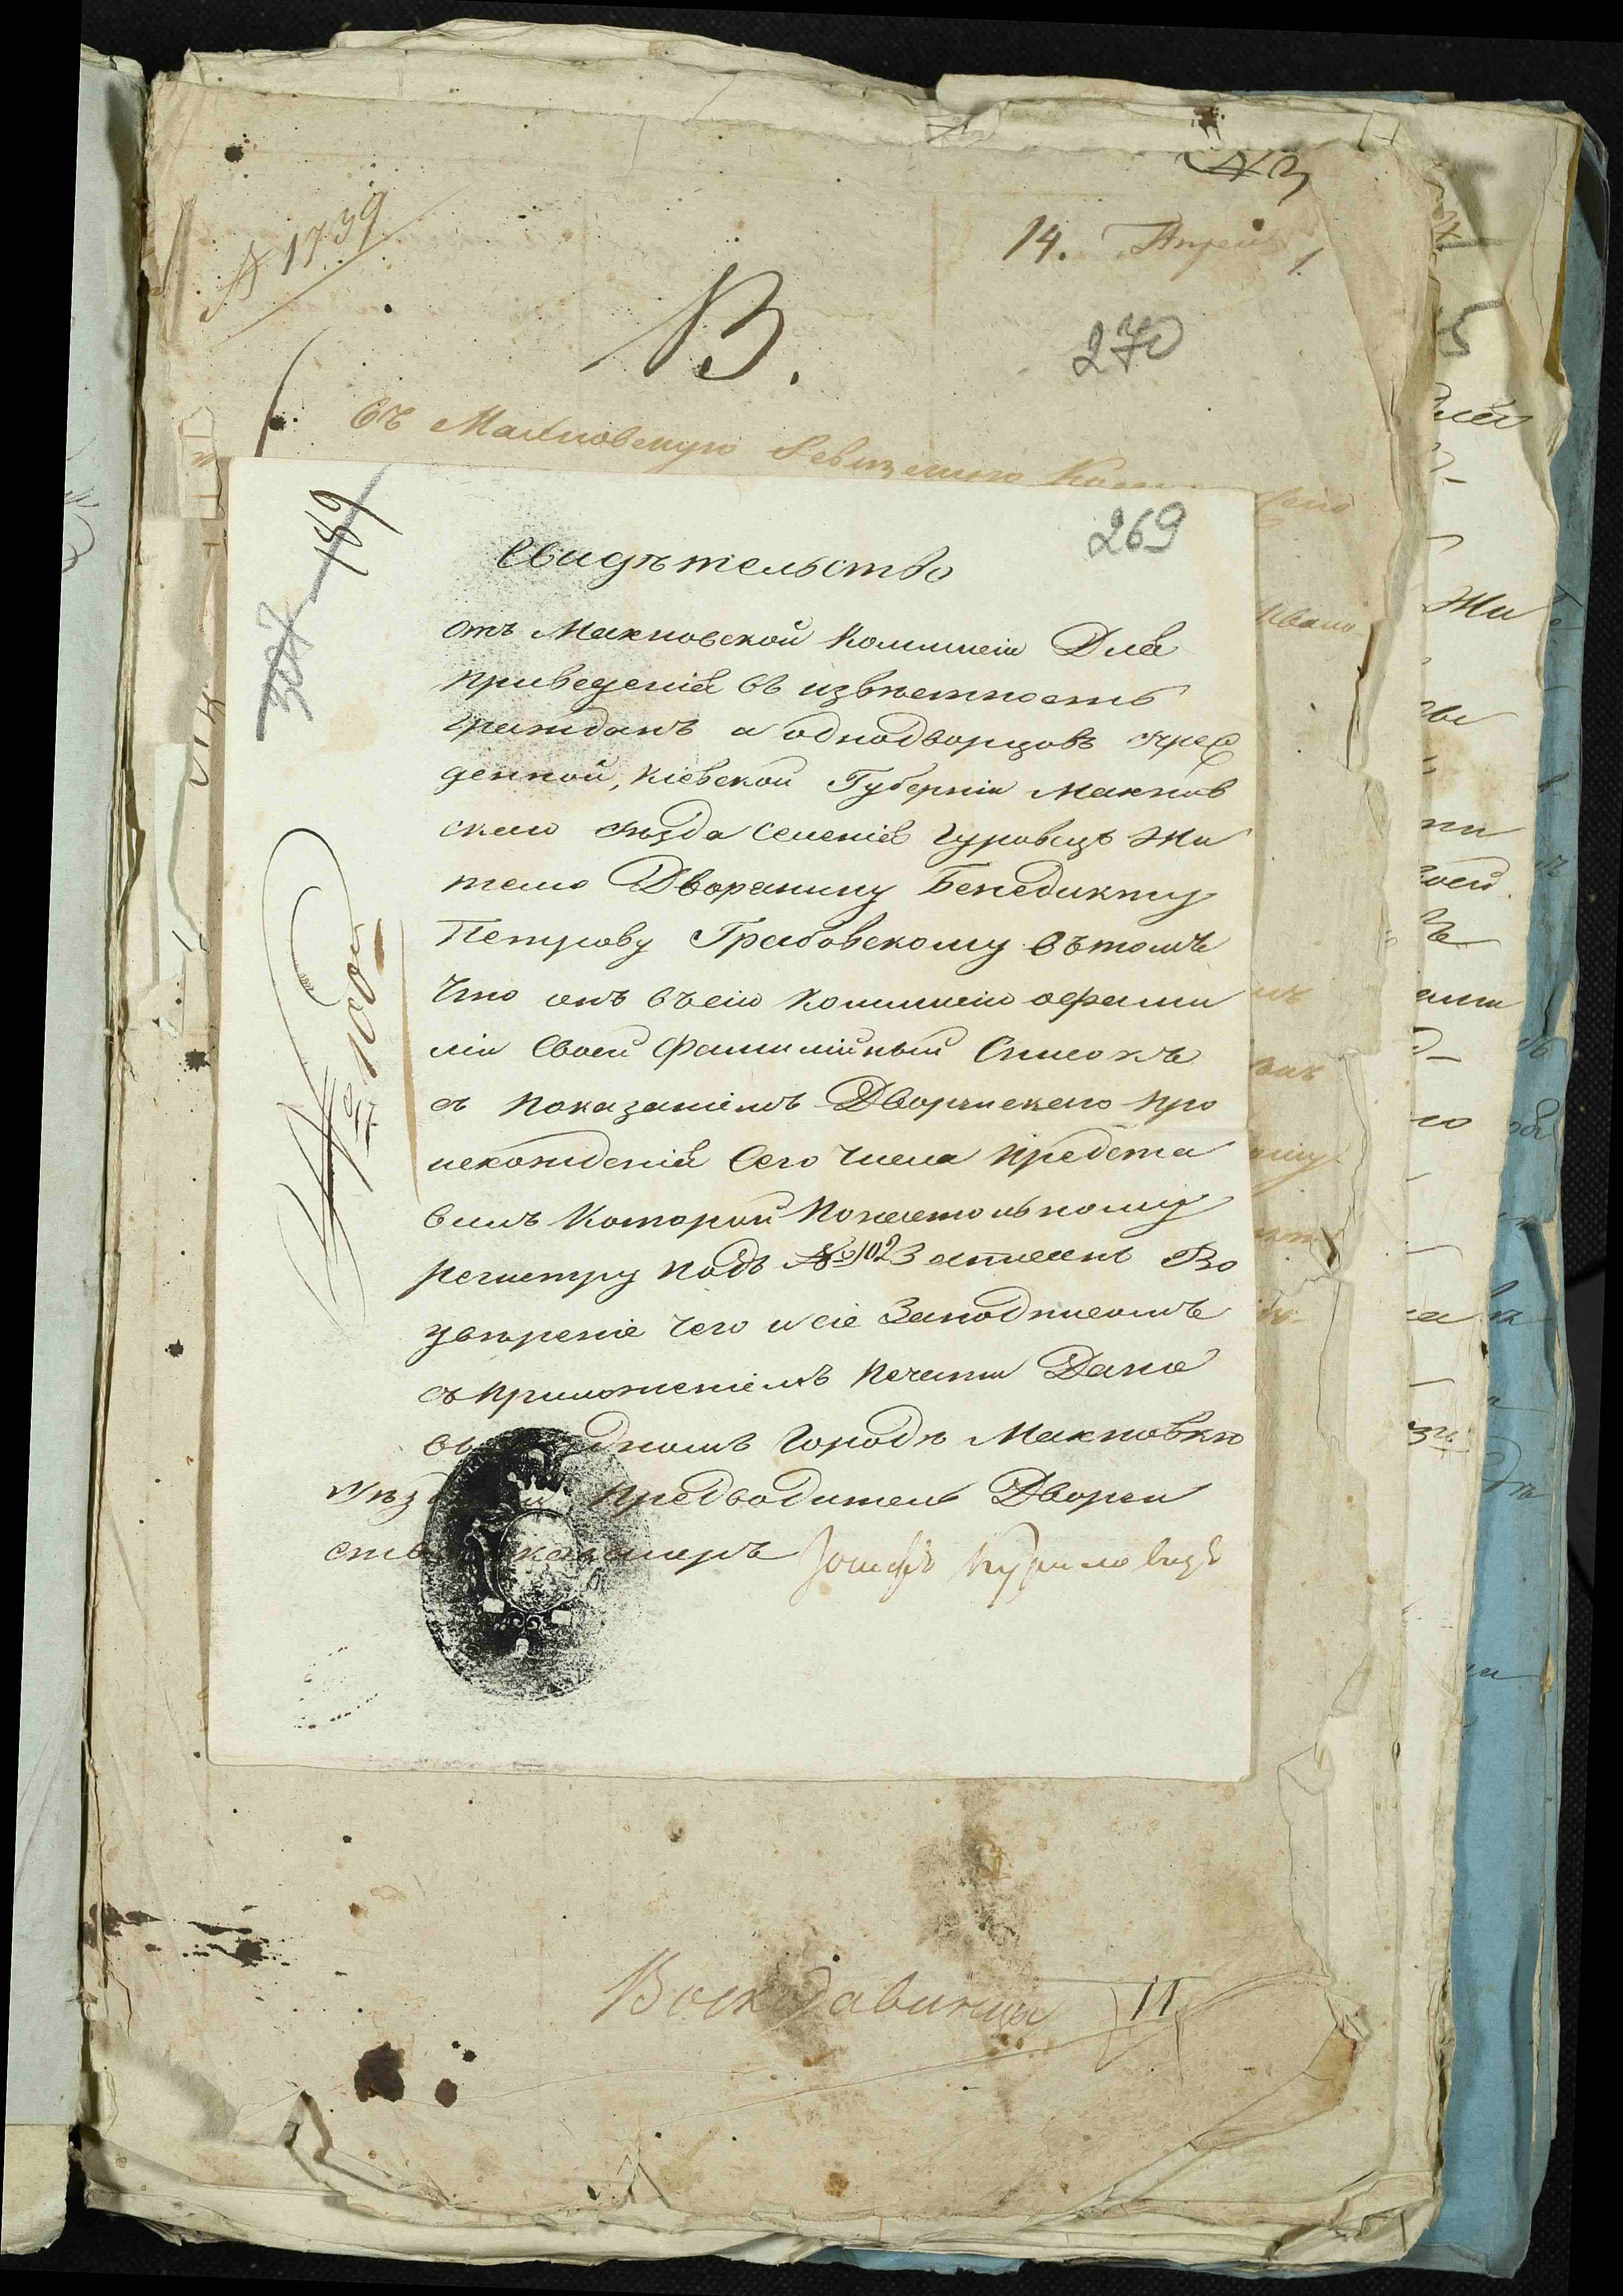 № 1739
14. Апреля
В.
270
Въ Махновскую Ревизскую
269
189
Свидѣтельство
отъ Махновской Коммисіи Для
приведенія въ извѣстность
гражданъ и однодворцовъ учреж
денной, Кіевской Губерніи Махнов
скаго уѣзда Селенія Гуровецъ Жи
телю Дворянину Бенедикту
Петрову Грабовскому въ томъ
Что онъ въ сію Коммисію о фами
ліи Своей Фамилійный Списокъ
съ показаніемъ Дворянскаго про
исхожденія Сего Числа предста
вилъ Который по настольному
регистру подъ № 1023 Во
увѣреніе Чего и сіе За подписомъ
съ приложеніемъ печати Дано
городѣ Махновкѣ
предводитель Дворян
Іосифъ Куриловичъ
11